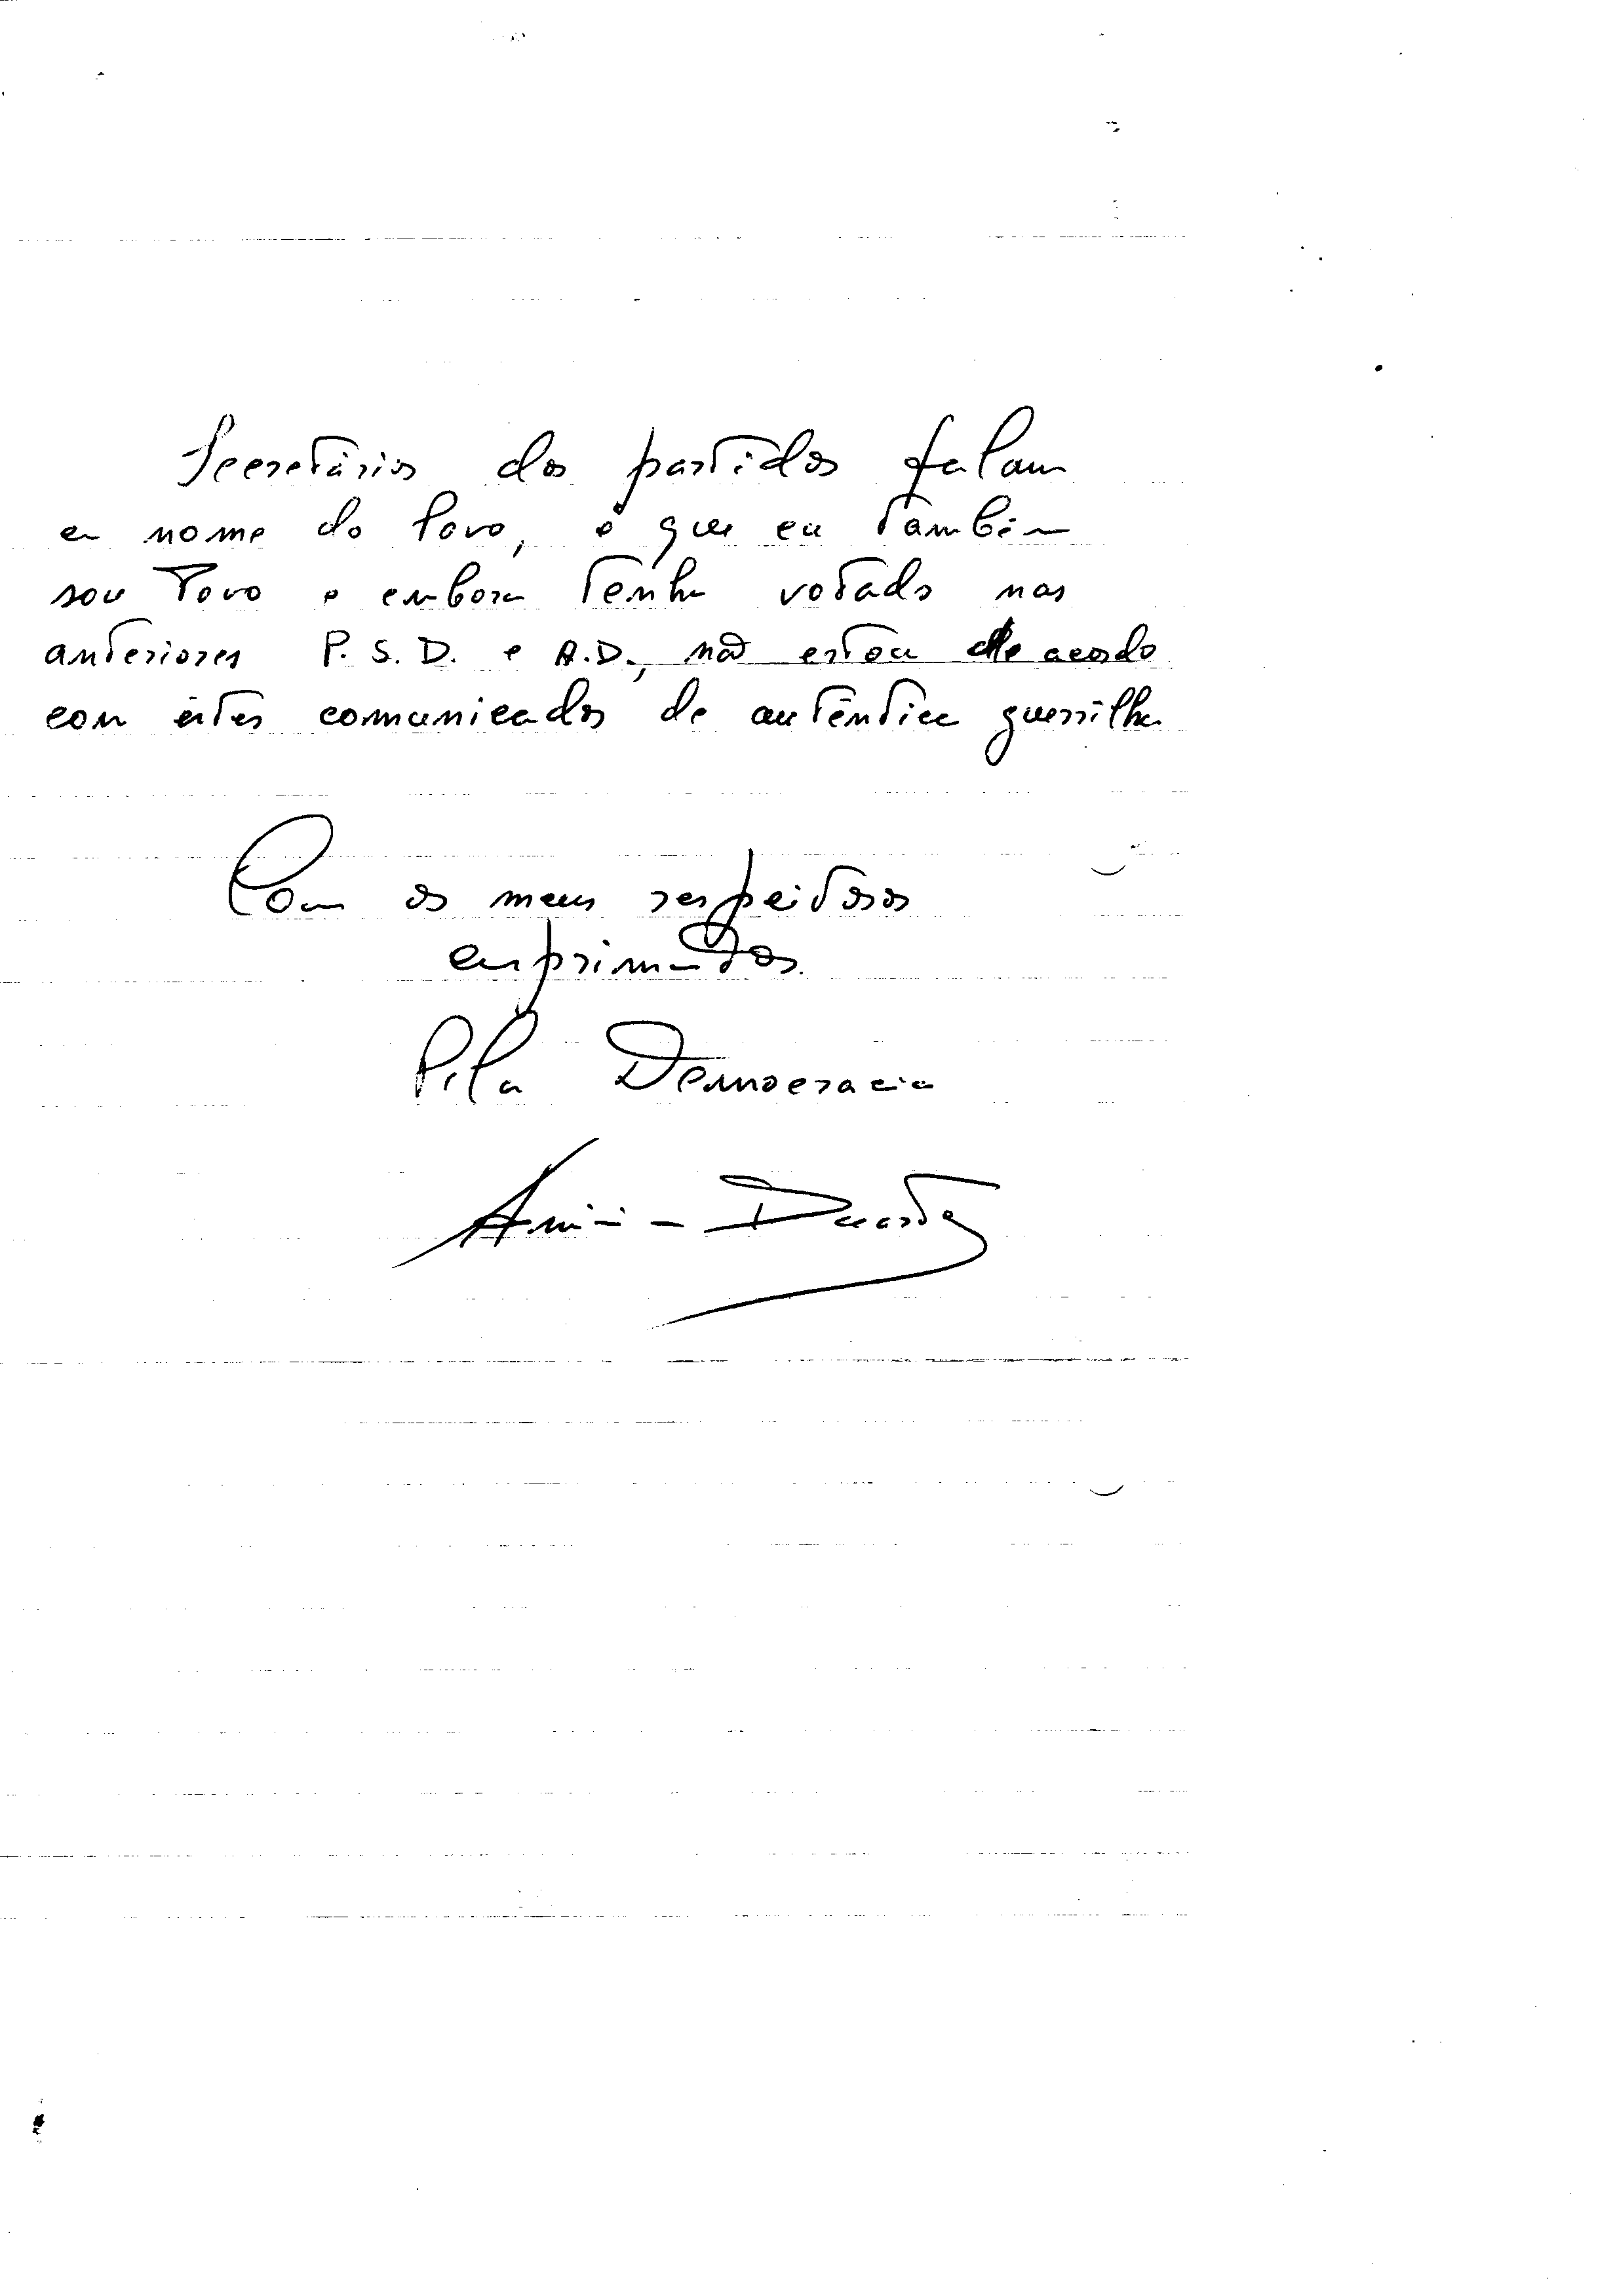 Secretários dos partidos falam
em nome do Povo, e que eu também
sou Povo e embora tenha votado nas
anteriores P.S.D. e A.D., não estou de acordo
com estes comunicados de autêntica guerrilha
Com os meus respeitosos
cumprimentos.
Pela Democracia
Duarte